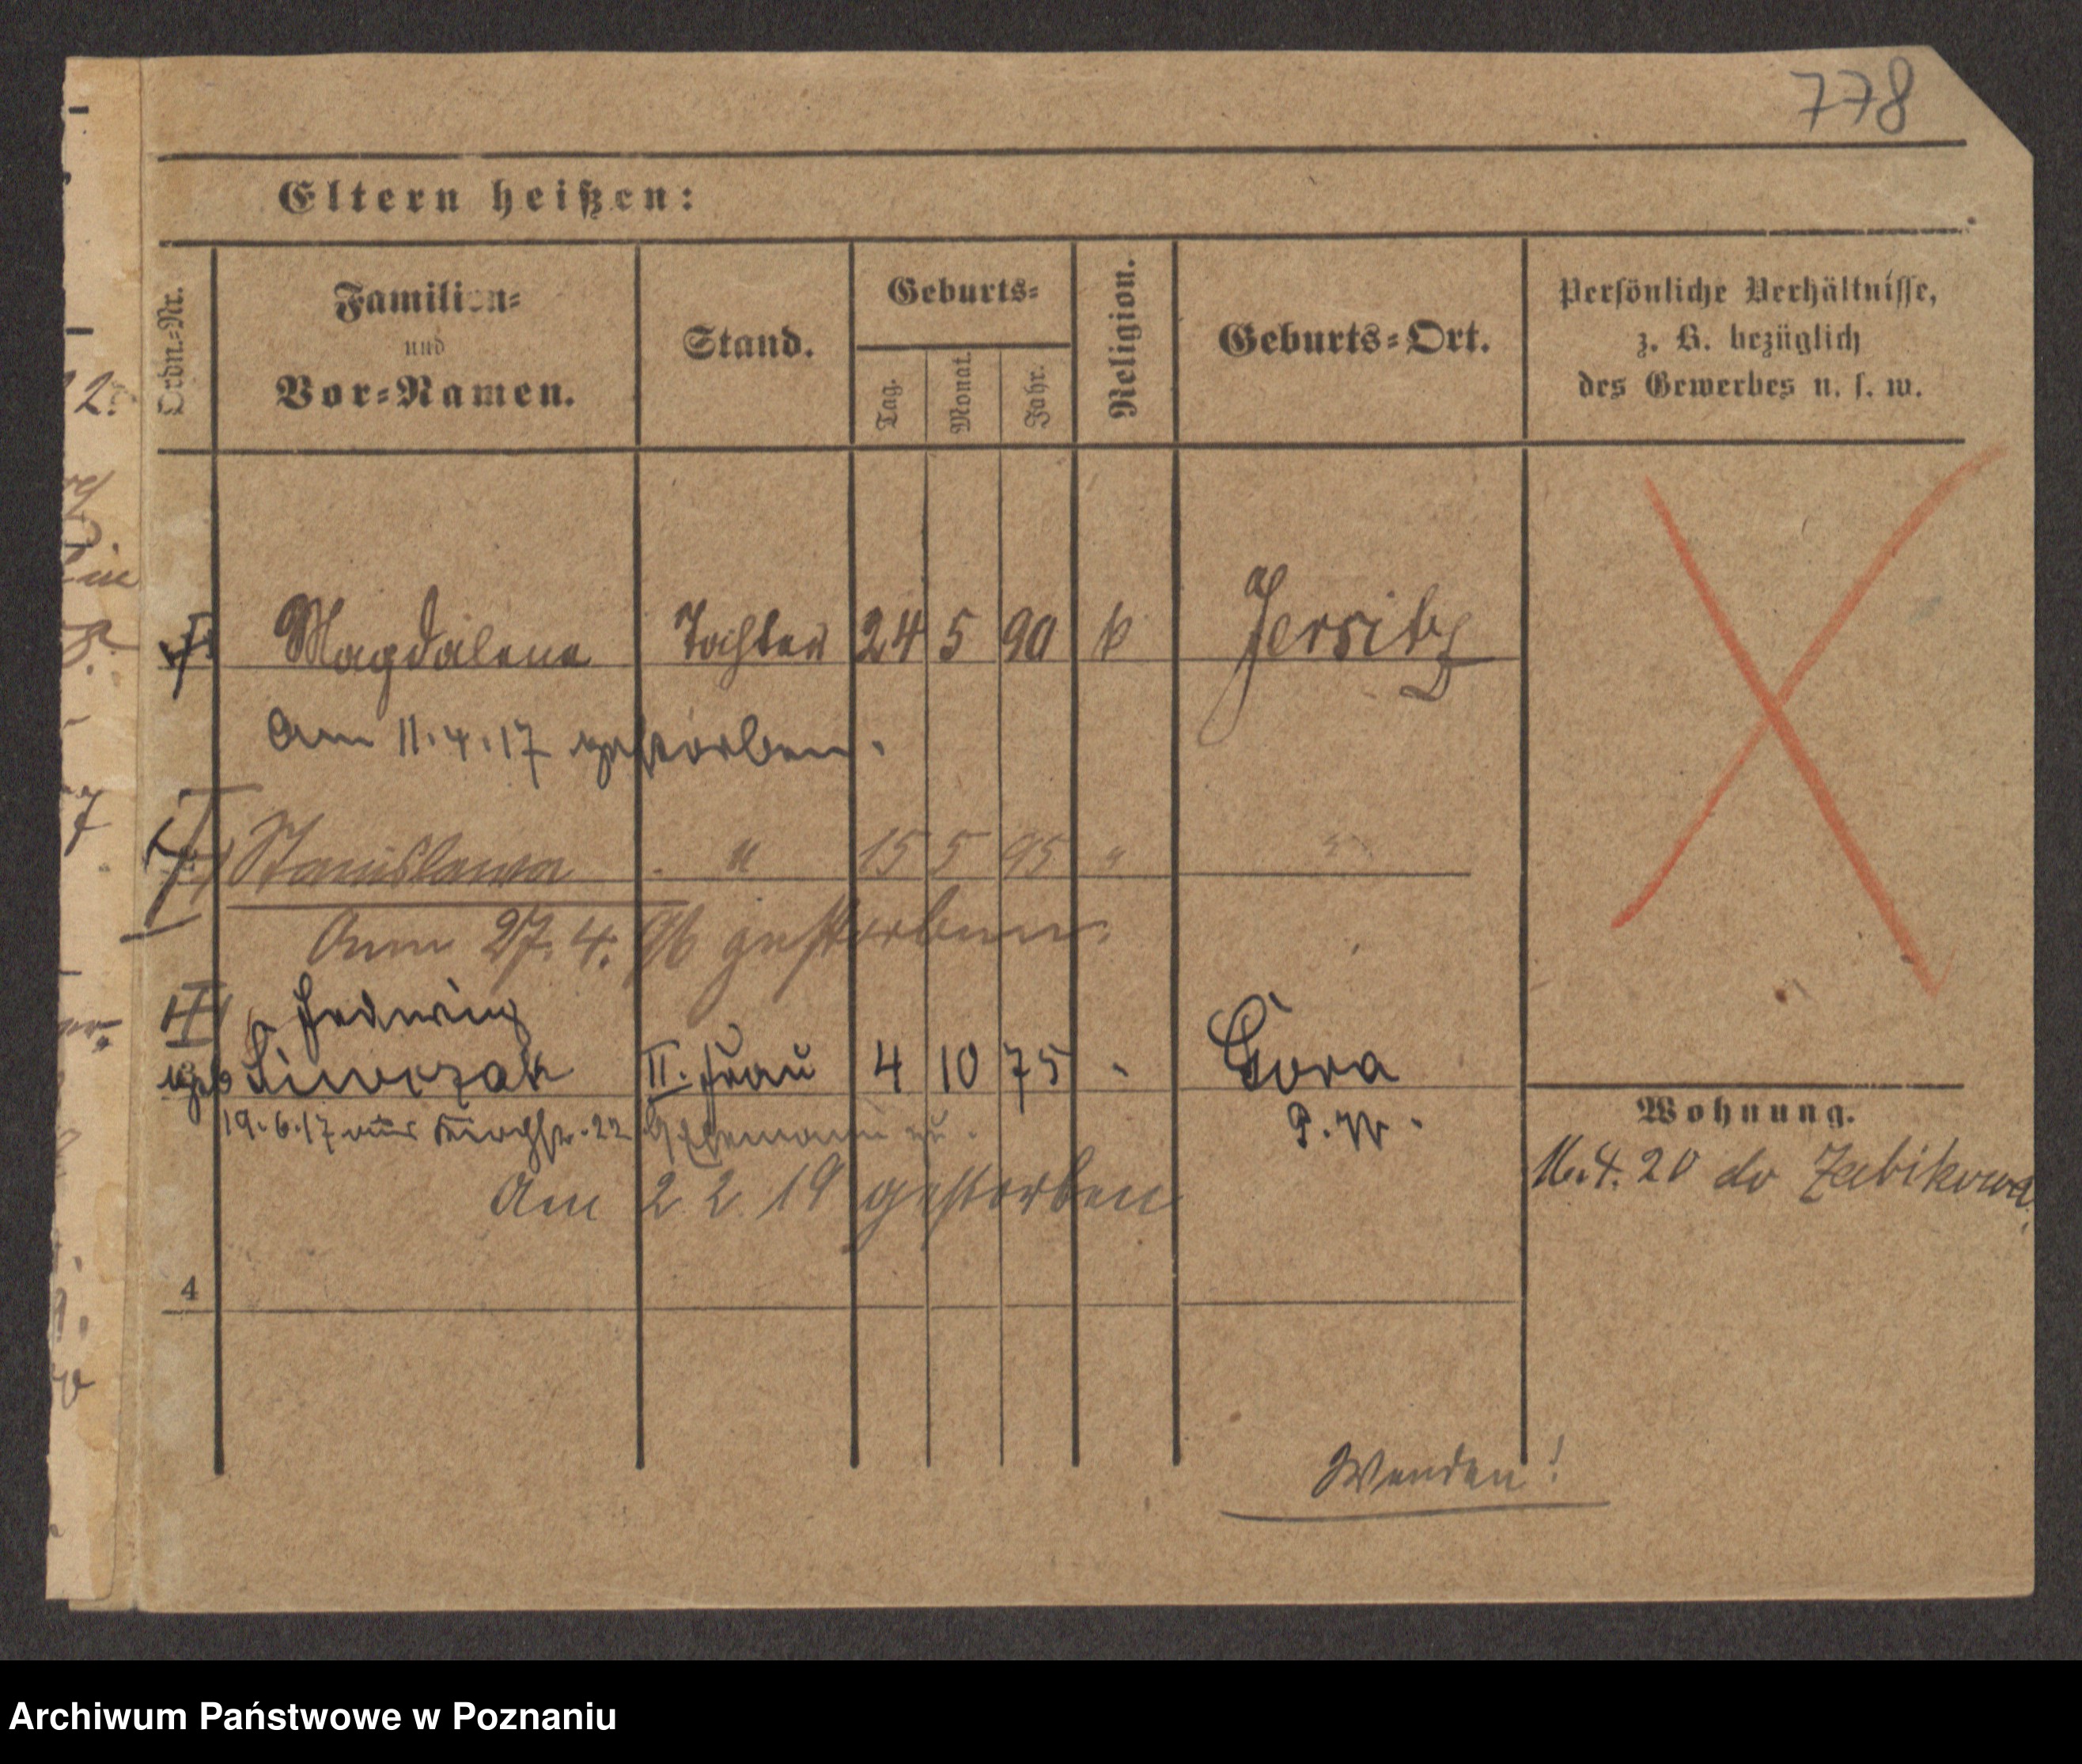 778
Eltern heißen:
Ordn.-Nr.
Familien-
und
Vor-Namen.
Stand.
Geburts-
Tag.
Monat.
Jahr.
Religion.
Geburts-Ort.
Persönliche Verhältnisse,
z. B. bezüglich
des Gewerbes u. s. w.
Magdalena Tochter 24 5 90 k Jersitz
am 11.4.17 gestorben.
Stanislawa " 15 5 95 " "
Am 27.4.96 gestorben.
Hedwig
geb Siwczak II. Frau 4 10 75 " Gora
19.6.17 aus Kirchstr. 22 Ehemann zu. P. W.
Am 2 2. 19 gestorben
Wohnung.
16.4.20 do Żabikowa
4
Wenden!
Archiwum Państwowe w Poznaniu